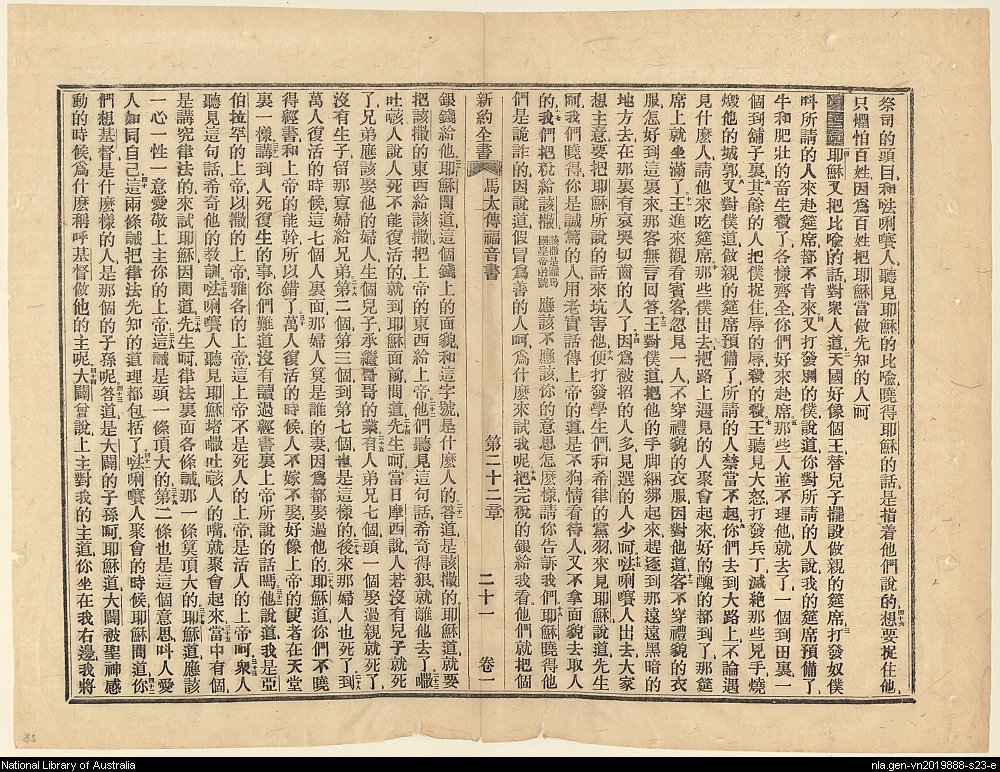 祭司的頭目和𠵽唎㘔人聽見耶穌的比喻曉得耶穌的話是指着他們說的想要捉住他
只懼怕百姓因爲百姓把耶穌當做先知的人呵
耶穌又把比喻的話對衆人道天國好像個王替兒子擺設做親的筵席打發奴僕
呌所請的人來赴筵席都不肯來又打發別的僕說道你對所請的人說我的筵席預備了
牛和肥壯的畜生殺了各樣齊全你們好來赴席那些人並不理他就去了一個到田裏一
個到舖子裏其餘的人把僕捉住辱的辱殺的殺王聽見大怒打發兵丁滅絶那些兇手燒
燬他的城郭又對僕道做親的筵席預備了所請的人禁當不起你們去到大路上不論遇
見什麽人請他來吃筵席那些僕出去把路上遇見的人聚會起來好的醜的都到了那筵
席上就坐滿了王進來觀看賓客忽見一人不穿禮貌的衣服因對他道客不穿禮貌的衣
服怎好到這裏來那客無言回答王對僕道把他的手脚綑綁起來趕逐到那遠遠黑暗的
地方去在那裏有哀哭切齒的人了因爲被招的人多見選的人少呵𠵽唎㘔人出去大家
想主意要把耶穌所說的話來坑害他便打發學生們和希律的黨羽來見耶穌說道先生
呵我們曉得你是誠篤的人用老實話傳上帝的道是不狥情看待人又不拿面貌去取人
的我們把稅給該撒該撒是羅馬國皇帝的號應該不應該你的意思怎麽樣請你告訴我們耶穌曉得他
們是詭詐的因說道假冒爲善的人呵爲什麽來試我呢把完稅的銀給我看他們就把個
新約全書 馬太傳福音書 第二十二章 二十一 卷一
銀錢給他耶穌問道這個錢上的面貌和這字號是什麽人的答道是該撒的耶穌道就要
把該撒的東西給該撒把上帝的東西給上帝他們聽見這句話希奇得狠就離他去了撒
吐該人說人死不能復活的就到耶穌面前問道先生呵當日摩西說人若沒有兒子就死
了兄弟應該娶他的婦人生個兒子承繼哥哥的業有人弟兄七個頭一個娶過親就死了
沒有生子留那寡婦給兄弟第二個第三個到第七個也是這樣的後來那婦人也死了到
萬人復活的時候這七個人裏面那婦人算是誰的妻因爲都娶過他的耶穌道你們不曉
得經書和上帝的能幹所以錯了萬人復活的時候人不嫁不娶好像上帝的使者在天堂
裏一樣講到人死復生的事你們難道沒有讀過經書裏上帝所說的話嗎他說道我是亞
伯拉罕的上帝以撒的上帝雅各的上帝這上帝不是死人的上帝是活人的上帝呵衆人
聽見這句話希奇他的教訓𠵽唎㘔人聽見耶穌堵撒吐該人的嘴就聚會起來當中有個
是講究律法的來試耶穌因問道先生呵律法裏面各條誡那一條算頂大的耶穌道應該
一心一性一意愛敬上主你的上帝這誡是頭一條頂大的第二條也是這個意思呌人愛
人如同自己這兩條誡把律法先知的道理都包括了𠵽唎㘔人聚會的時候耶穌問道你
們想基督是什麽樣的人是那個的子孫呢答道是大闢的子孫呵耶穌道大闢被聖神感
動的時候爲什麽稱呼基督做他的主呢大闢曾說上主對我的主道你坐在我右邊我將
National Library of Australia
nla.gen-vn2019888-s23-e